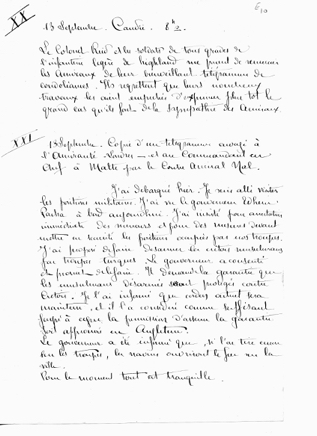 XX
13 Septembre. Candie. 8h 2.
Le Colonel Reid et les soldats de tous grades de
l'infanterie légère de highland me prient de remercier
les Amiraux de leur bienveillant télégramme de
condoléances. Ils regrettent que leurs nombreux
travaux les aient empêchés d'exprimer plus tôt le
grand cas qu'ils font de la sympathie des Amiraux.
XXI
13 Septembre. Copie d'un télégramme envoyé à
l'Amirauté Londres et au Commandant en
Chef à Malte par le Contre Amiral Noel.
J'ai débarqué hier. Je suis allé visiter
les positions militaires. J'ai vu le gouverneur Edhem
Pacha à bord aujourd'hui. J'ai insisté pour
immédiate des meneurs et pour des mesures devant
mettre en sûreté les positions occupées par nos troupes.
J'ai proposé de faire désarmer les crétois musulmans
par troupes turques. Le gouverneur a consenti
et promis de le faire. Il demande la garantie que
les musulmans désarmés soient protégés contre
Crétois. Je l'ai informé que cordon actuel sera
maintenu et il l'a considéré comme suffisant
jusqu'à ce que la permission d'assurer la garantie
soit approuvée en Angleterre.
Le gouverneur a été informé que, si l'on tire encore
sur les troupes, les navires ouvriront le feu sur la
ville.
Pour le moment tout est tranquille.